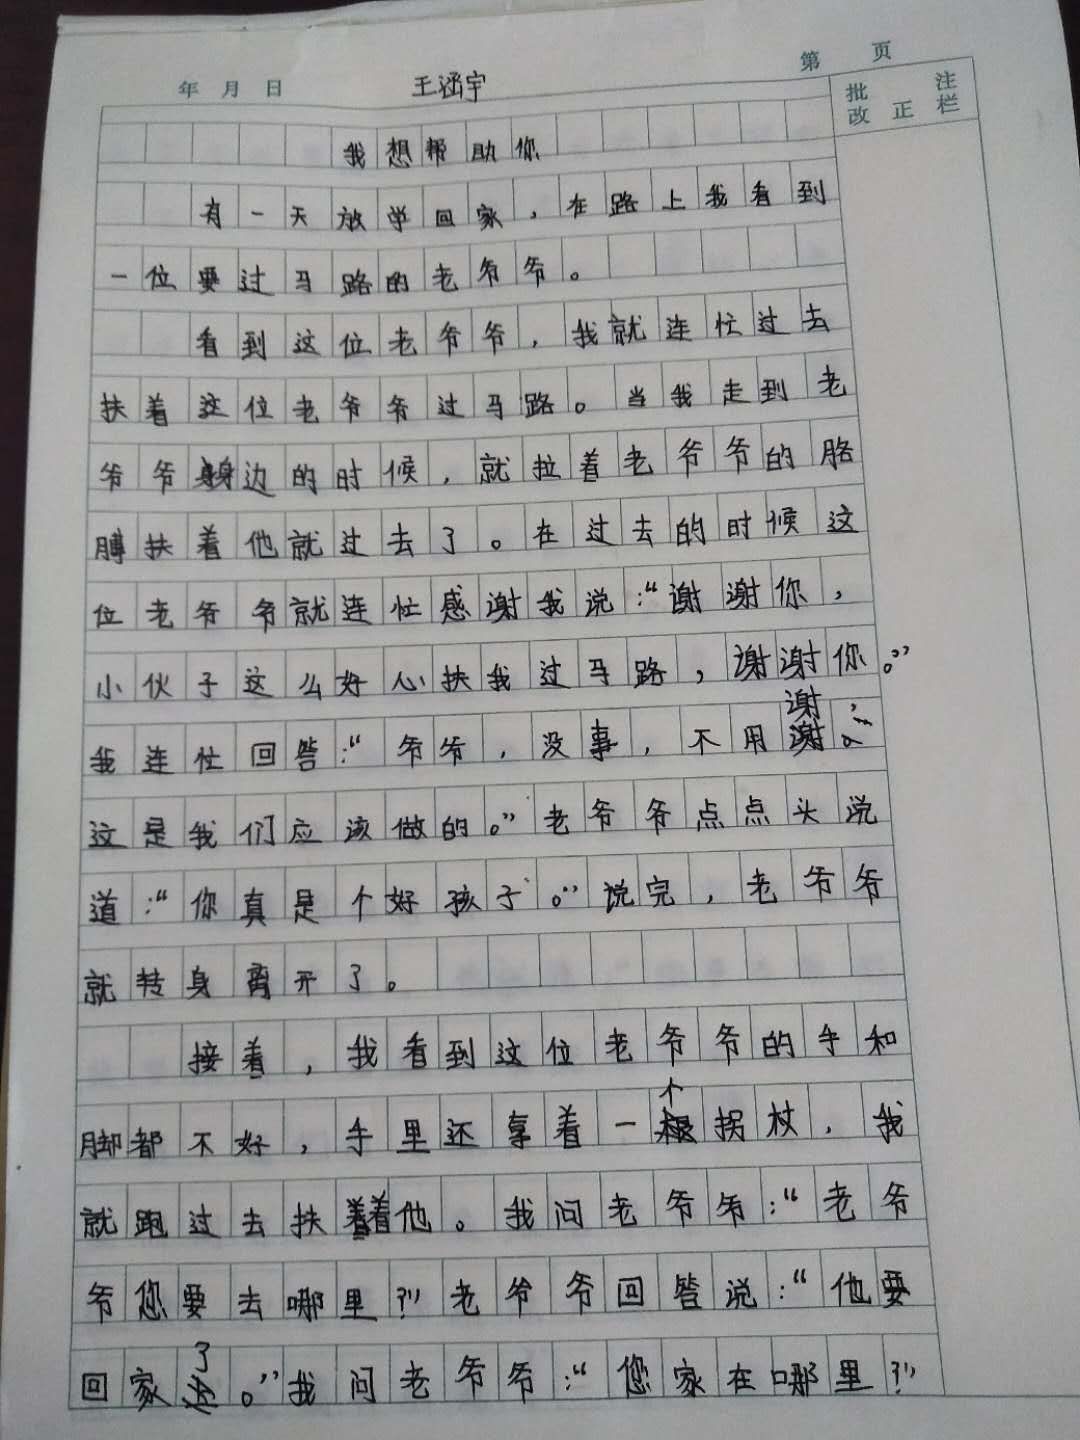 第 页
年 月 日 王涵宇
批 注
改 正 栏
我想帮助你
有一天放学回家，在路上我看到
一位要过马路的老爷爷。
看到这位老爷爷，我就连忙过去
扶着这位老爷爷过马路。当我走到老
爷爷身边的时候，就拉着老爷爷的胳
膊扶着他就过去了。在过去的时候这
位老爷爷就连忙感谢我说：“谢谢你，
小伙子这么好心扶我过马路，谢谢你。”
我连忙回答：“爷爷，没事，不用谢，
这是我们应该做的。”老爷爷点点头说
道：“你真是个好孩子。”说完，老爷爷
就转身离开了。
接着，我看到这位老爷爷的手和
脚都不好，手里还拿着一个拐杖，我
就跑过去扶着他。我问老爷爷：“老爷
爷您要去哪里？”老爷爷回答说：“他要
回家了。”我问老爷爷：“您家在哪里？”